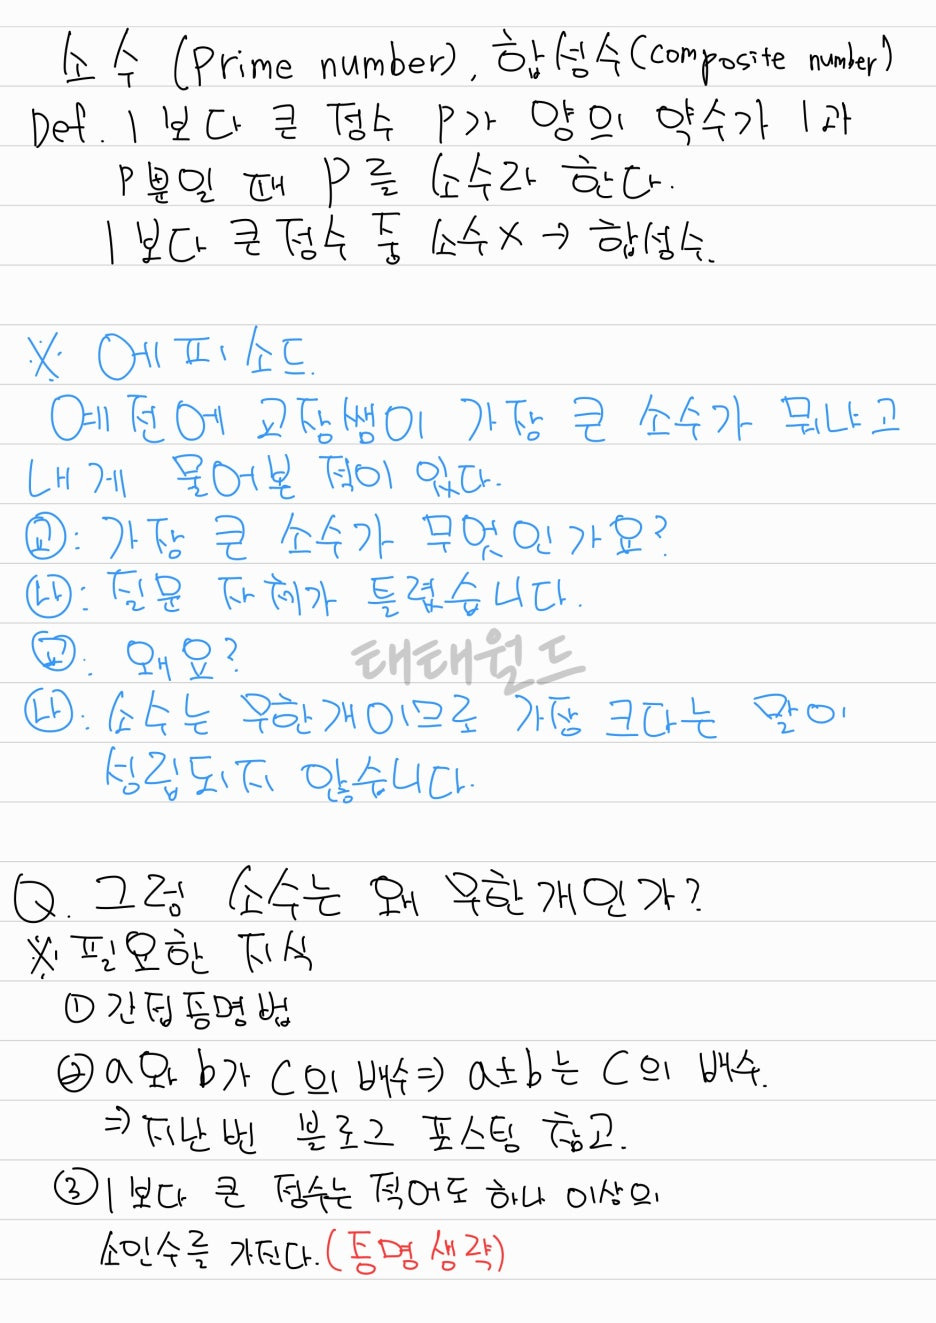 소수 (Prime number), 합성수(composite number)
Def. 1보다 큰 정수 P가 양의 약수가 1과
P뿐일 때 P를 소수라 한다.
1보다 큰 정수 중 소수X → 합성수.
※ 에피소드.
예전에 교장쌤이 가장 큰 소수가 뭐냐고
내게 물어본 적이 있다.
교: 가장 큰 소수가 무엇인가요?
나: 질문 자체가 틀렸습니다.
교: 왜요?
태태월드
나: 소수는 무한개이므로 가장 크다는 말이
성립되지 않습니다.
Q. 그럼 소수는 왜 무한개인가?
※ 필요한 지식
① 간접증명법
② a와 b가 C의 배수⇒ a±b는 C의 배수.
⇒ 지난번 블로그 포스팅 참고.
③ 1보다 큰 정수는 적어도 하나 이상의
소인수를 가진다. (증명 생략)